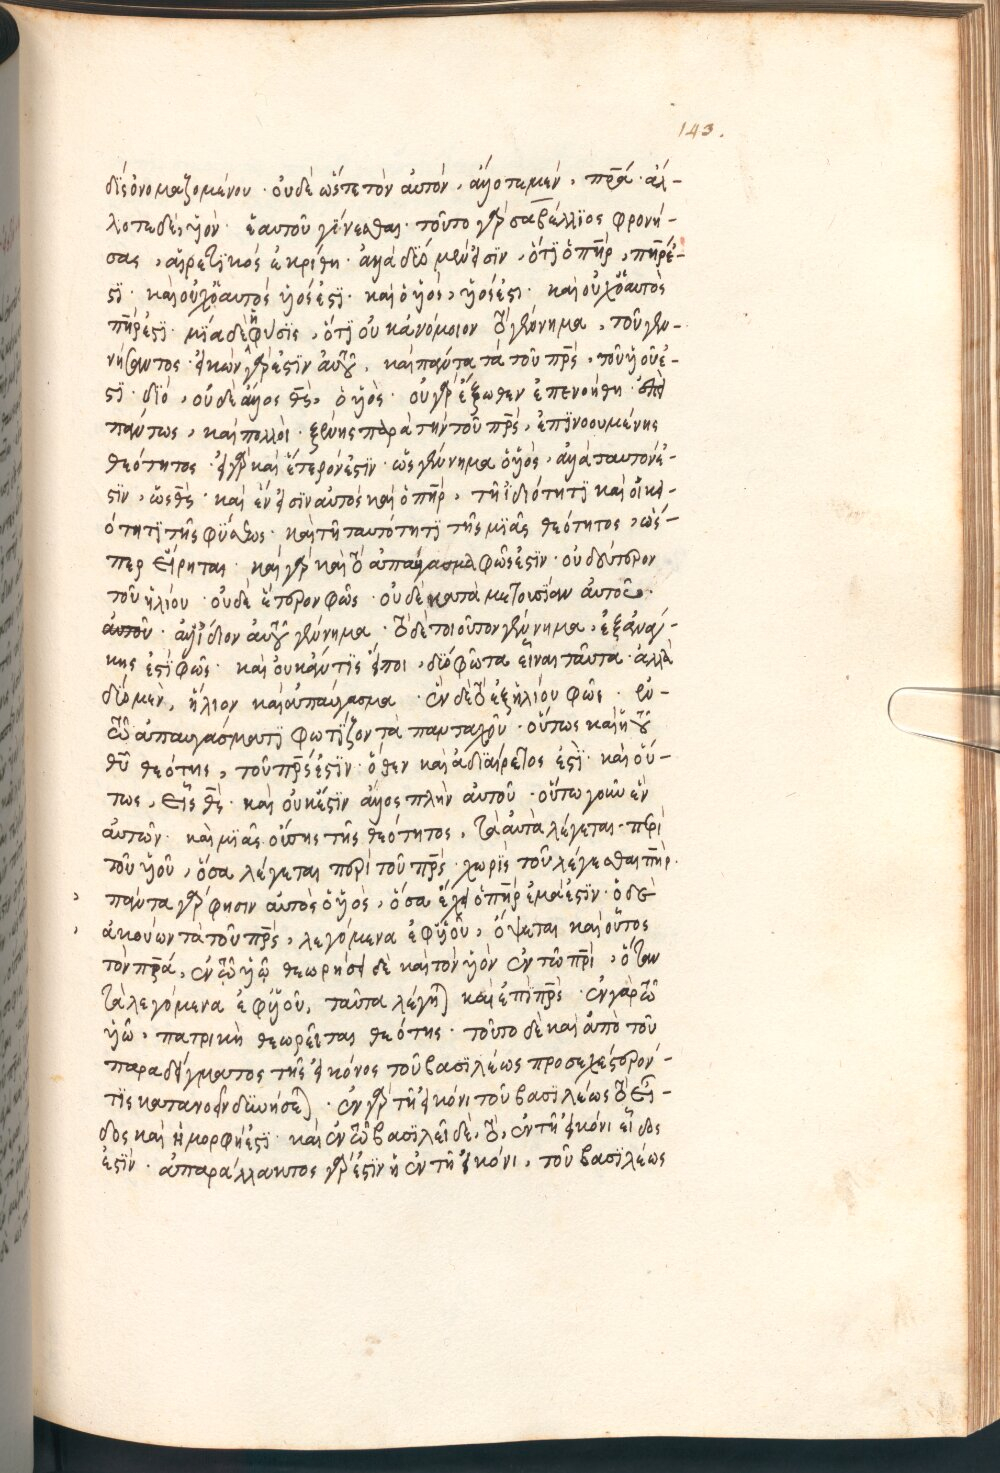 143.
δὶς ὀνομαζομένου· οὐδὲ ὥστε τὸν αὐτὸν, ἄλλοτε μὲν, πρ̅α̅· ἄλ-
λοτε δὲ, υἱὸν ἑαυτοῦ γίνεσθαι· τοῦτο γὰρ σαβέλλιος φρονή-
σας, αἱρετικὸς ἐκρίθη· ἀλλὰ δύο μέν εἰσιν, ὅτι ὁ πη̅ρ, πη̅ρ ἐ-
στι· καὶ οὐχ ὁ αὐτὸς υἱός ἐστι· καὶ ὁ υἱὸς, υἱός ἐστι· καὶ οὐχ ὁ αὐτὸς
πη̅ρ ἐστι· μία δὲ ἡ φύσις, ὅτι οὐκ ἀνόμοιον τὸ γέννημα, τοῦ γεν-
νήσαντος· εἰκὼν γάρ ἐστιν αὐτοῦ, καὶ πάντα τὰ τοῦ πρ̅ς, τοῦ υἱοῦ ἐ-
στι· διὸ, οὐδὲ ἄλλος θς̅, ὁ υἱὸς· οὐ γὰρ ἔξωθεν ἐπενοήθη· ἐπεὶ
πάντως, καὶ πολλοὶ· ξένης παρὰ τὴν τοῦ πρ̅ς, ἐπινοουμένης
θεότητος· εἰ γὰρ καὶ ἕτερόν ἐστιν· ὡς γέννημα ὁ υἱὸς, ἀλλὰ ταυτόν ἐ-
στιν, ὡς θς̅· καὶ ἕν εἰσιν αὐτὸς καὶ ὁ πη̅ρ, τῇ ἰδιότητι καὶ οἰκει-
ότητι τῆς φύσεως· καὶ τῇ ταυτότητι τῆς μιᾶς θεότητος, ὥσ-
περ εἴρηται· καὶ γὰρ καὶ τὸ ἀπαύγασμα φῶς ἐστιν· οὐ δεύτερον
τοῦ ἡλίου· οὐδὲ ἕτερον φῶς· οὐδὲ κατὰ μετουσίαν αὐτοῦ·
αὐτοῦ· ἀλλ' ἴδιον αὐτοῦ γέννημα· τὸ δὲ τοιοῦτον γέννημα, ἐξ ἀνάγ-
κης ἐστὶ φῶς· καὶ οὐκ ἄν τις εἴποι, δύο φῶτα εἶναι ταῦτα· ἀλλὰ
δύο μὲν, ἥλιον καὶ ἀπαύγασμα· ἓν δὲ τὸ ἐξ ἡλίου φῶς· ἐν
τῶ ἀπαυγάσματι φωτίζον τὰ πανταχοῦ· οὕτως καὶ ἡ τοῦ
θῦ θεότης, τοῦ πρ̅ς ἐστιν· ὅθεν καὶ ἀδιαίρετος ἐστι· καὶ οὕ-
τως, εἷς θς̅· καὶ οὐκ ἔστιν ἄλλος πλὴν αὐτοῦ· οὕτω γοῦν ἓν
αὐτῶν· καὶ μιᾶς οὔσης τῆς θεότητος, τὰ αὐτὰ λέγεται περὶ
τοῦ υἱοῦ, ὅσα λέγεται περὶ τοῦ πρ̅ς· χωρὶς τοῦ λέγεσθαι πη̅ρ·
πάντα γὰρ φησιν αὐτὸς ὁ υἱὸς, ὅσα ἔχει ὁ πη̅ρ ἐμά ἐστιν· ὁ δὲ
ἀκούων τὰ τοῦ πρ̅ς, λεγόμενα ἐφ υἱοῦ, ὄψεται καὶ οὕτος
τὸν πρ̅α̅, ἐν τῶ υἱῶ· θεωρήσει δὲ καὶ τὸν υἱὸν ἐν τῶ πρ̅ι, ὅταν
τὰ λεγόμενα ἐφ υἱοῦ, ταῦτα λέγηται καὶ ἐπὶ πρ̅ς· ἐν γὰρ τῶ
υἱῶ, πατρικὴ θεωρεῖται θεότης· τοῦτο δὲ καὶ ἀπὸ τοῦ
παραδείγματος τῆς εἰκόνος τοῦ βασιλέως προσεχέστερόν
τις κατανοεῖν δυνήσεται· ἐν γὰρ τῇ εἰκόνι τοῦ βασιλέως τὸ εἶ-
δος καὶ ἡ μορφή ἐστι· καὶ ἐν τῶ βασιλεῖ δὲ, τὸ, ἐν τῇ εἰκόνι εἶδος
ἐστίν· ἀπαράλλακτος γάρ ἐστιν ἡ ἐν τῇ εἰκόνι, τοῦ βασιλέως